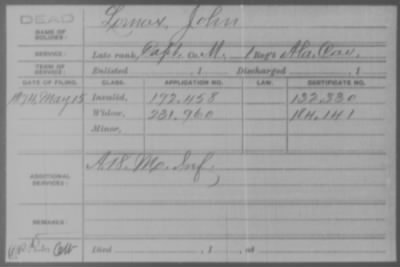 DEAD
NAME OF SOLDIER: Lomax, John
SERVICE: Late rank, Capt. Co. M, 1 Reg't Ala. Cav.
TERM OF SERVICE: Enlisted , 1 Discharged , 1
DATE OF FILING. CLASS. APPLICATION NO. LAW. CERTIFICATE NO.
May 15 Invalid, 172.458 132.330
Widow, 231.960 184.141
Minor,
ADDITIONAL SERVICES: A 18. Mo. Inf.
REMARKS:
Died , 1 , at